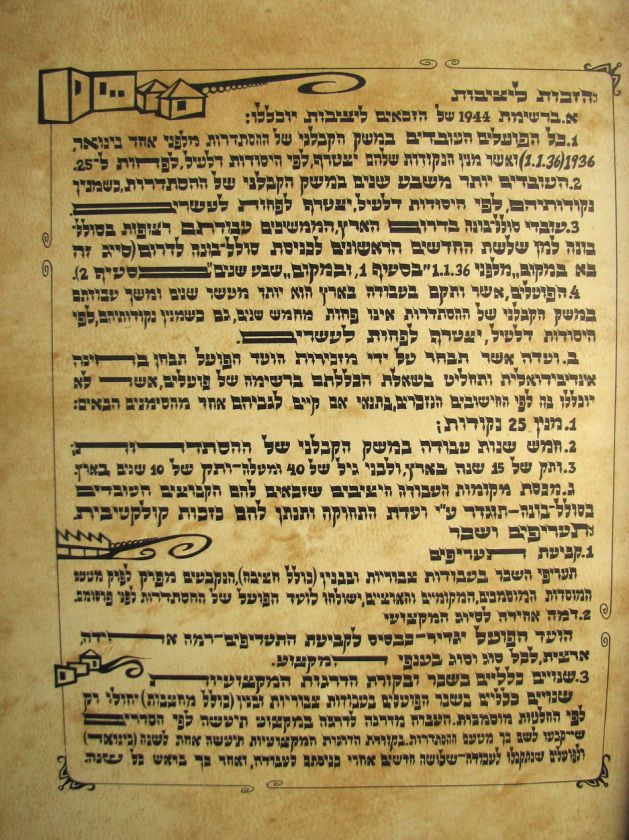 הזכות ליציבות
א. ברשימת 1944 של הזכאים ליציבות יוכללו:
1. כל הפועלים העובדים במשק הקבלני של ההסתדרות מלפני אחד בינואר
1936 (1.1.36) ואשר מנין הנקודות שלהם יצטרף, לפי היסודות דלעיל, לפחות ל-25.
2. העובדים יותר משבע שנים במשק הקבלני של ההסתדרות, כשמנין
נקודותיהם, לפי היסודות דלעיל, יצטרף לפחות לעשרים.
3. עובדי סולל-בונה בדרום הארץ, הממשיכים עבודתם רצופות בסולל-
בונה למן שלשת החדשים הראשונים לכניסת סולל-בונה לדרום (סייג זה
בא במקום "מלפני 1.1.36" בסעיף 1, ובמקום "שבע שנים" סעיף 2).
4. הפועלים, אשר ותקם בעבודה בארץ הוא יותר מעשר שנים ומשך עבודתם
במשק הקבלני של ההסתדרות אינו פחות מחמש שנים, גם כשמנין נקודותיהם, לפי
היסודות דלעיל, יצטרף לפחות לעשרים.
ב. ועדה אשר תבחר על ידי מזכירות הועד הפועל תבחן בדחינה
אינדיבידואלית ותחליט בשאלת הכללתם ברשימה של פועלים, אשר לא
יוכללו בה לפי החישובים הנזכרים, בתנאי אם קיים לגביהם אחד מהסימנים הבאים:
1. מנין 25 נקודות;
2. חמש שנות עבודה במשק הקבלני של ההסתדרות;
3. ותק של 15 שנה בארץ, ולבני גיל של 40 ומעלה-ותק של 10 שנים בארץ.
ג. מכסת מקומות העבודה היציבים שזכאים להם הקבוצים העובדים
בסולל-בונה-תוגדר ע"י ועדת התחוקה ותנתן להם כזכות קולקטיבית.
תעריפים ושכר
1. קביעת תעריפים
תעריפי השכר בעבודות צבוריות ובבנין (כולל חציבה), הנקבעים מפרק לפרק מטעם
המוסדות המוסמכים, המקומיים והארציים, ישולחו לועד הפועל של ההסתדרות לפני פרסומם.
2. רמה אחידה לסיווג המקצועי
הועד הפועל יגדיר-כבסיס לקביעת התעריפים-רמה אחידה,
ארצית, לכל סוג וסוג בענפי המקצוע.
3. שנויים כלליים בשכר ובקורת הדרגות המקצועיות
שנויים כלליים בשכר הפועלים בעבודות צבוריות ובנין (כולל מחצבות) יחולו רק
לפי החלטות מוסמכות. העברה מדרגה לדרגה במקצוע תיעשה לפי הסדרים
ש-יקבעו לשם כך מטעם ההסתדרות. בקורת הדרגות המקצועיות תיעשה אחת לשנה (בינואר)
ולפועלים שנתקבלו לעבודה-שלושה חדשים אחרי כניסתם לעבודה, ואחר כך בראש כל שנה.